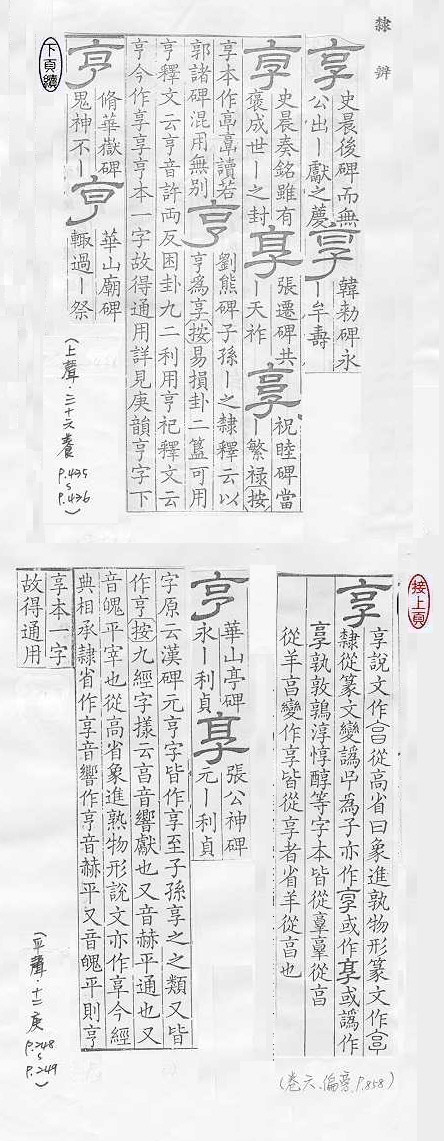 隸辨
享 史晨後碑而無
公出丨獻之薦
享 韓勑碑永
丨牟壽
享 史晨奏銘雖有
褒成世丨之封
享 張遷碑共
丨天祚
享 祝睦碑當
丨繁祿按
享本作亯讀若
郭諸碑混用無別
亨 劉熊碑子孫丨之隸釋云以
亨爲享按易損卦二簋可用
亨釋文云亨音許両反困卦九二利用亨祀釋文云
亨今作享享亨本一字故得通用詳見庚韻亨字下
亨 脩華嶽碑
鬼神不丨
亨 華山廟碑
輒過丨祭
下頁續
(上聲·三十六養 P.435 S P.436)
接上頁
享 享說文作亯從高省曰象進孰物形篆文作亯
隸從篆文變譌𠃓為子亦作享或作享或譌作
享孰敦鶉淳惇醇等字本皆從𦎫𦎫從亯
從羊亯變作享皆從享者省羊從亯也
(卷六、偏旁、P.858)
亨 華山亭碑
永丨利貞
享 張公神碑
元丨利貞
字原云漢碑元亨字皆作享至子孫享之之類又皆
作亨按九經字樣云亯音響獻也又音赫平通也又
音魄平宰也從高省象進熟物形說文亦作享今經
典相承隸省作享音響作亨音赫平又音魄平則亨
享本一字
故得通用
(平聲·十二庚 P.248 S P.249)